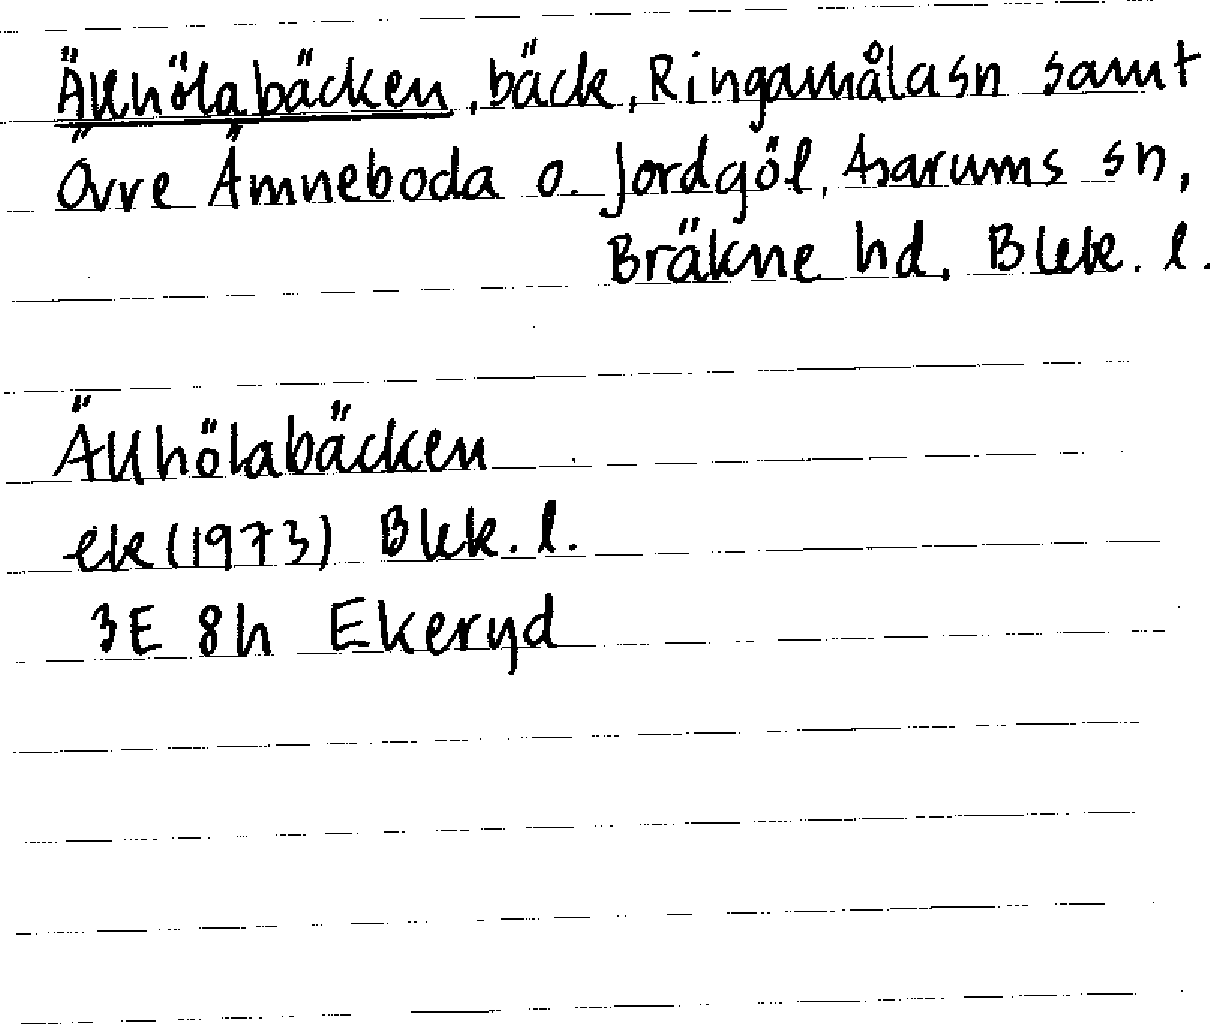 Ällhölabäcken, bäck, Ringamåla sn samt
Övre Ämneboda o. Jordgöl, Asarums sn,
Bräkne hd, Blek. l.
Ällhölabäcken
ek (1973) Blek. l.
3E 8h Ekeryd